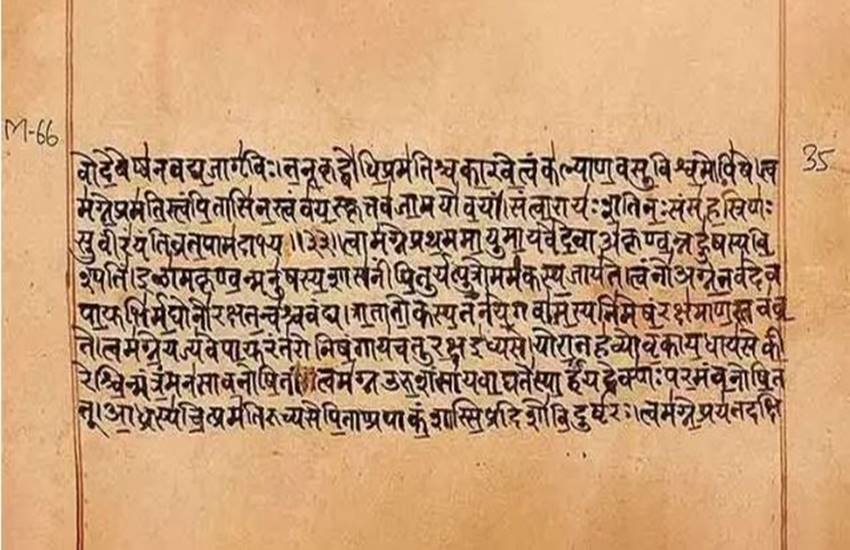 M-66
35
वोदेवेष्वनवद्यजागृविः। तनूकृद्बोधिप्रमतिश्चकारवेत्वंकल्याणवसुविश्वमोपिषे।त्व
मग्नेप्रमतिस्त्वंपितासिनस्त्वंवयस्कृत्तवजामयोवयं। संत्वारायःशतिनःसंसहस्रिणः
सुवीरंयंतिव्रतपामदाभ्य॥३३॥त्वामग्नेप्रथममायुमायवेदेवाअकृण्वन्नहुषस्यवि
श्पतिं।इळामकृण्वन्मनुषस्यशासनींपितुर्यत्पुत्रोममकस्यजायते।त्वंनोअग्नेतवदेव
पायुभिर्मघोनोरक्षतन्वश्चवंद्य।त्रातातोकस्यतनयेगवामस्यनिमेषंरक्षमाणस्तवव्र
ते।त्वमग्नेयज्यवेपायुरंतरोनिषंगायचतुरक्षइध्यसे।योरातहव्योवृकायधायसेकी
रेश्चिन्मंत्रंमनसावनोषितं।त्वमग्नउरुशंसायवाघतेस्पार्हंयद्रेक्णःपरमंवनोषित
त्।आध्रस्यचित्प्रमतिरुच्यसेपिताप्रपाकंशास्सिप्रदिशोविदुष्टरः।त्वमग्नेप्रयतदक्षि